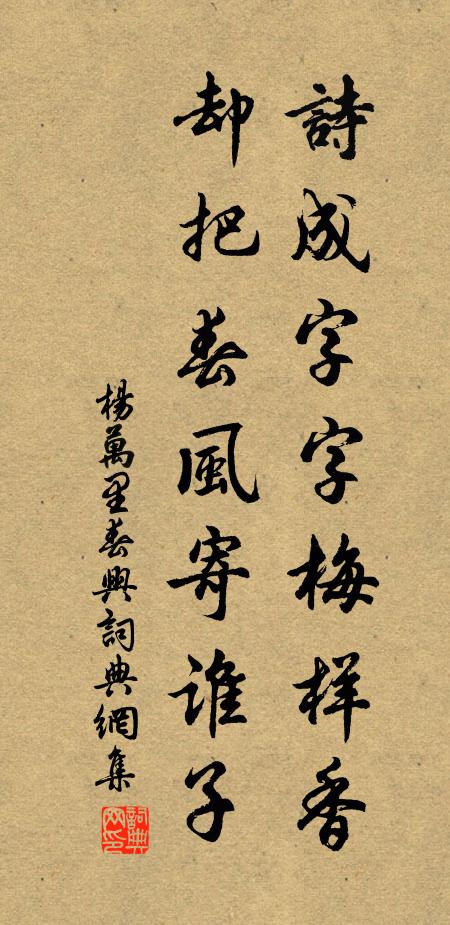 詩成字字梅样香
却把春風寄谁子
楊萬里春興詞典網集
詞典网印